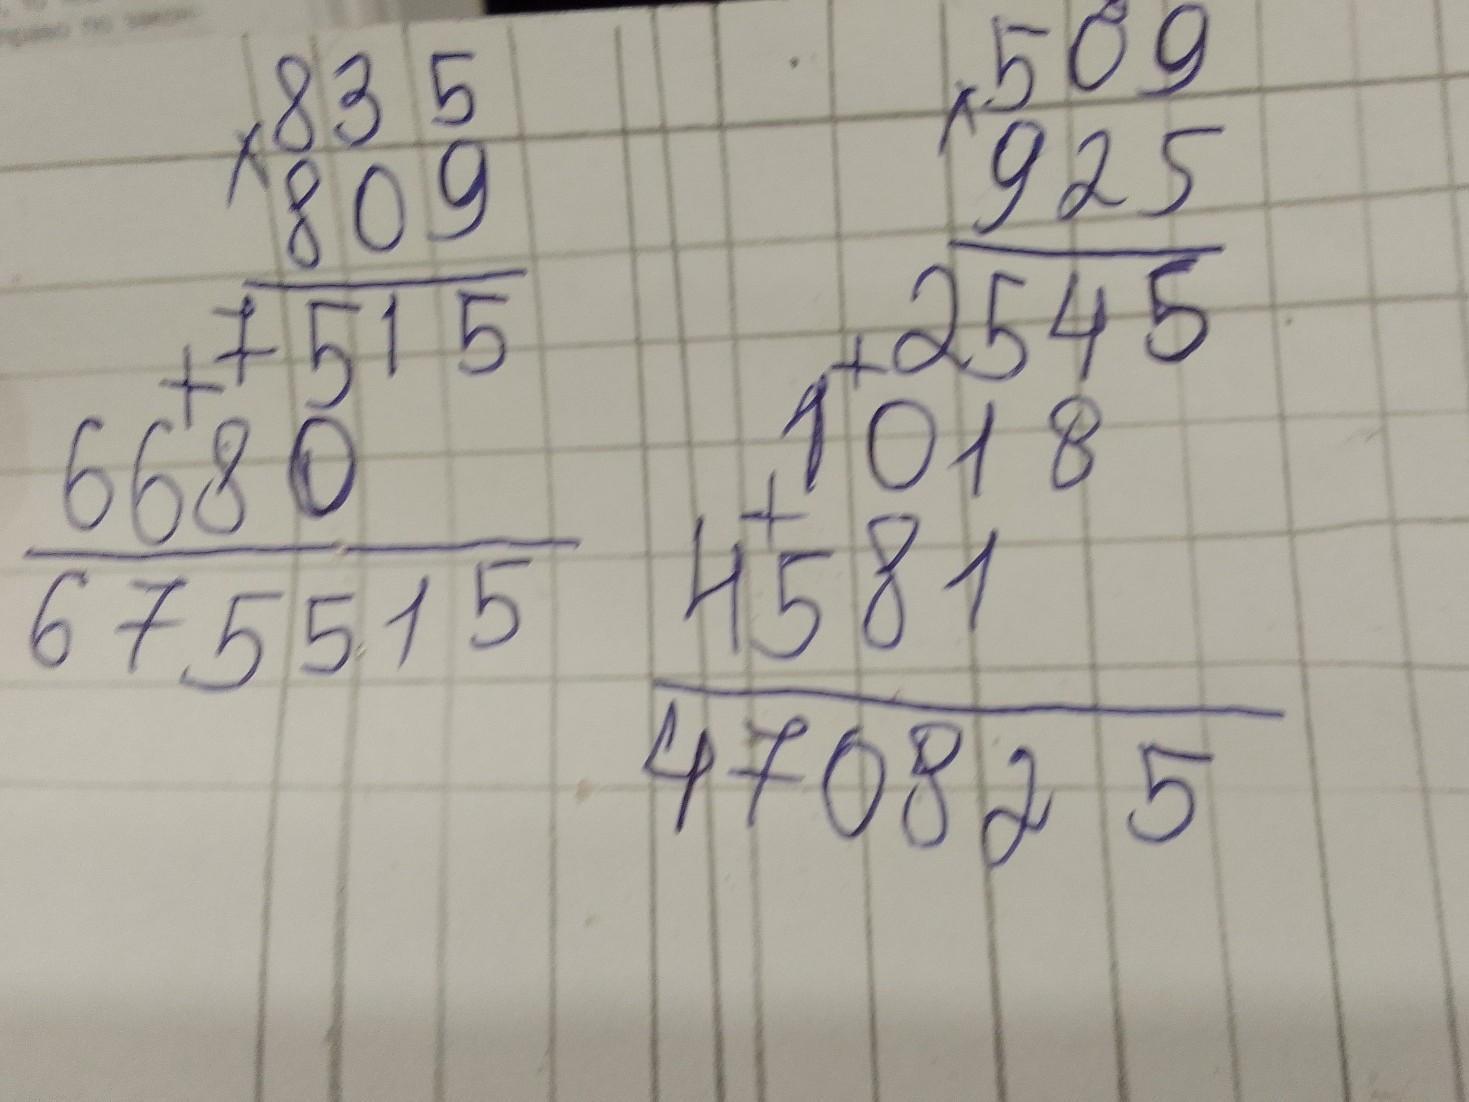 835
×809
7515
+
6680
675515
509
×925
2545
+
1018
+
4581
470825